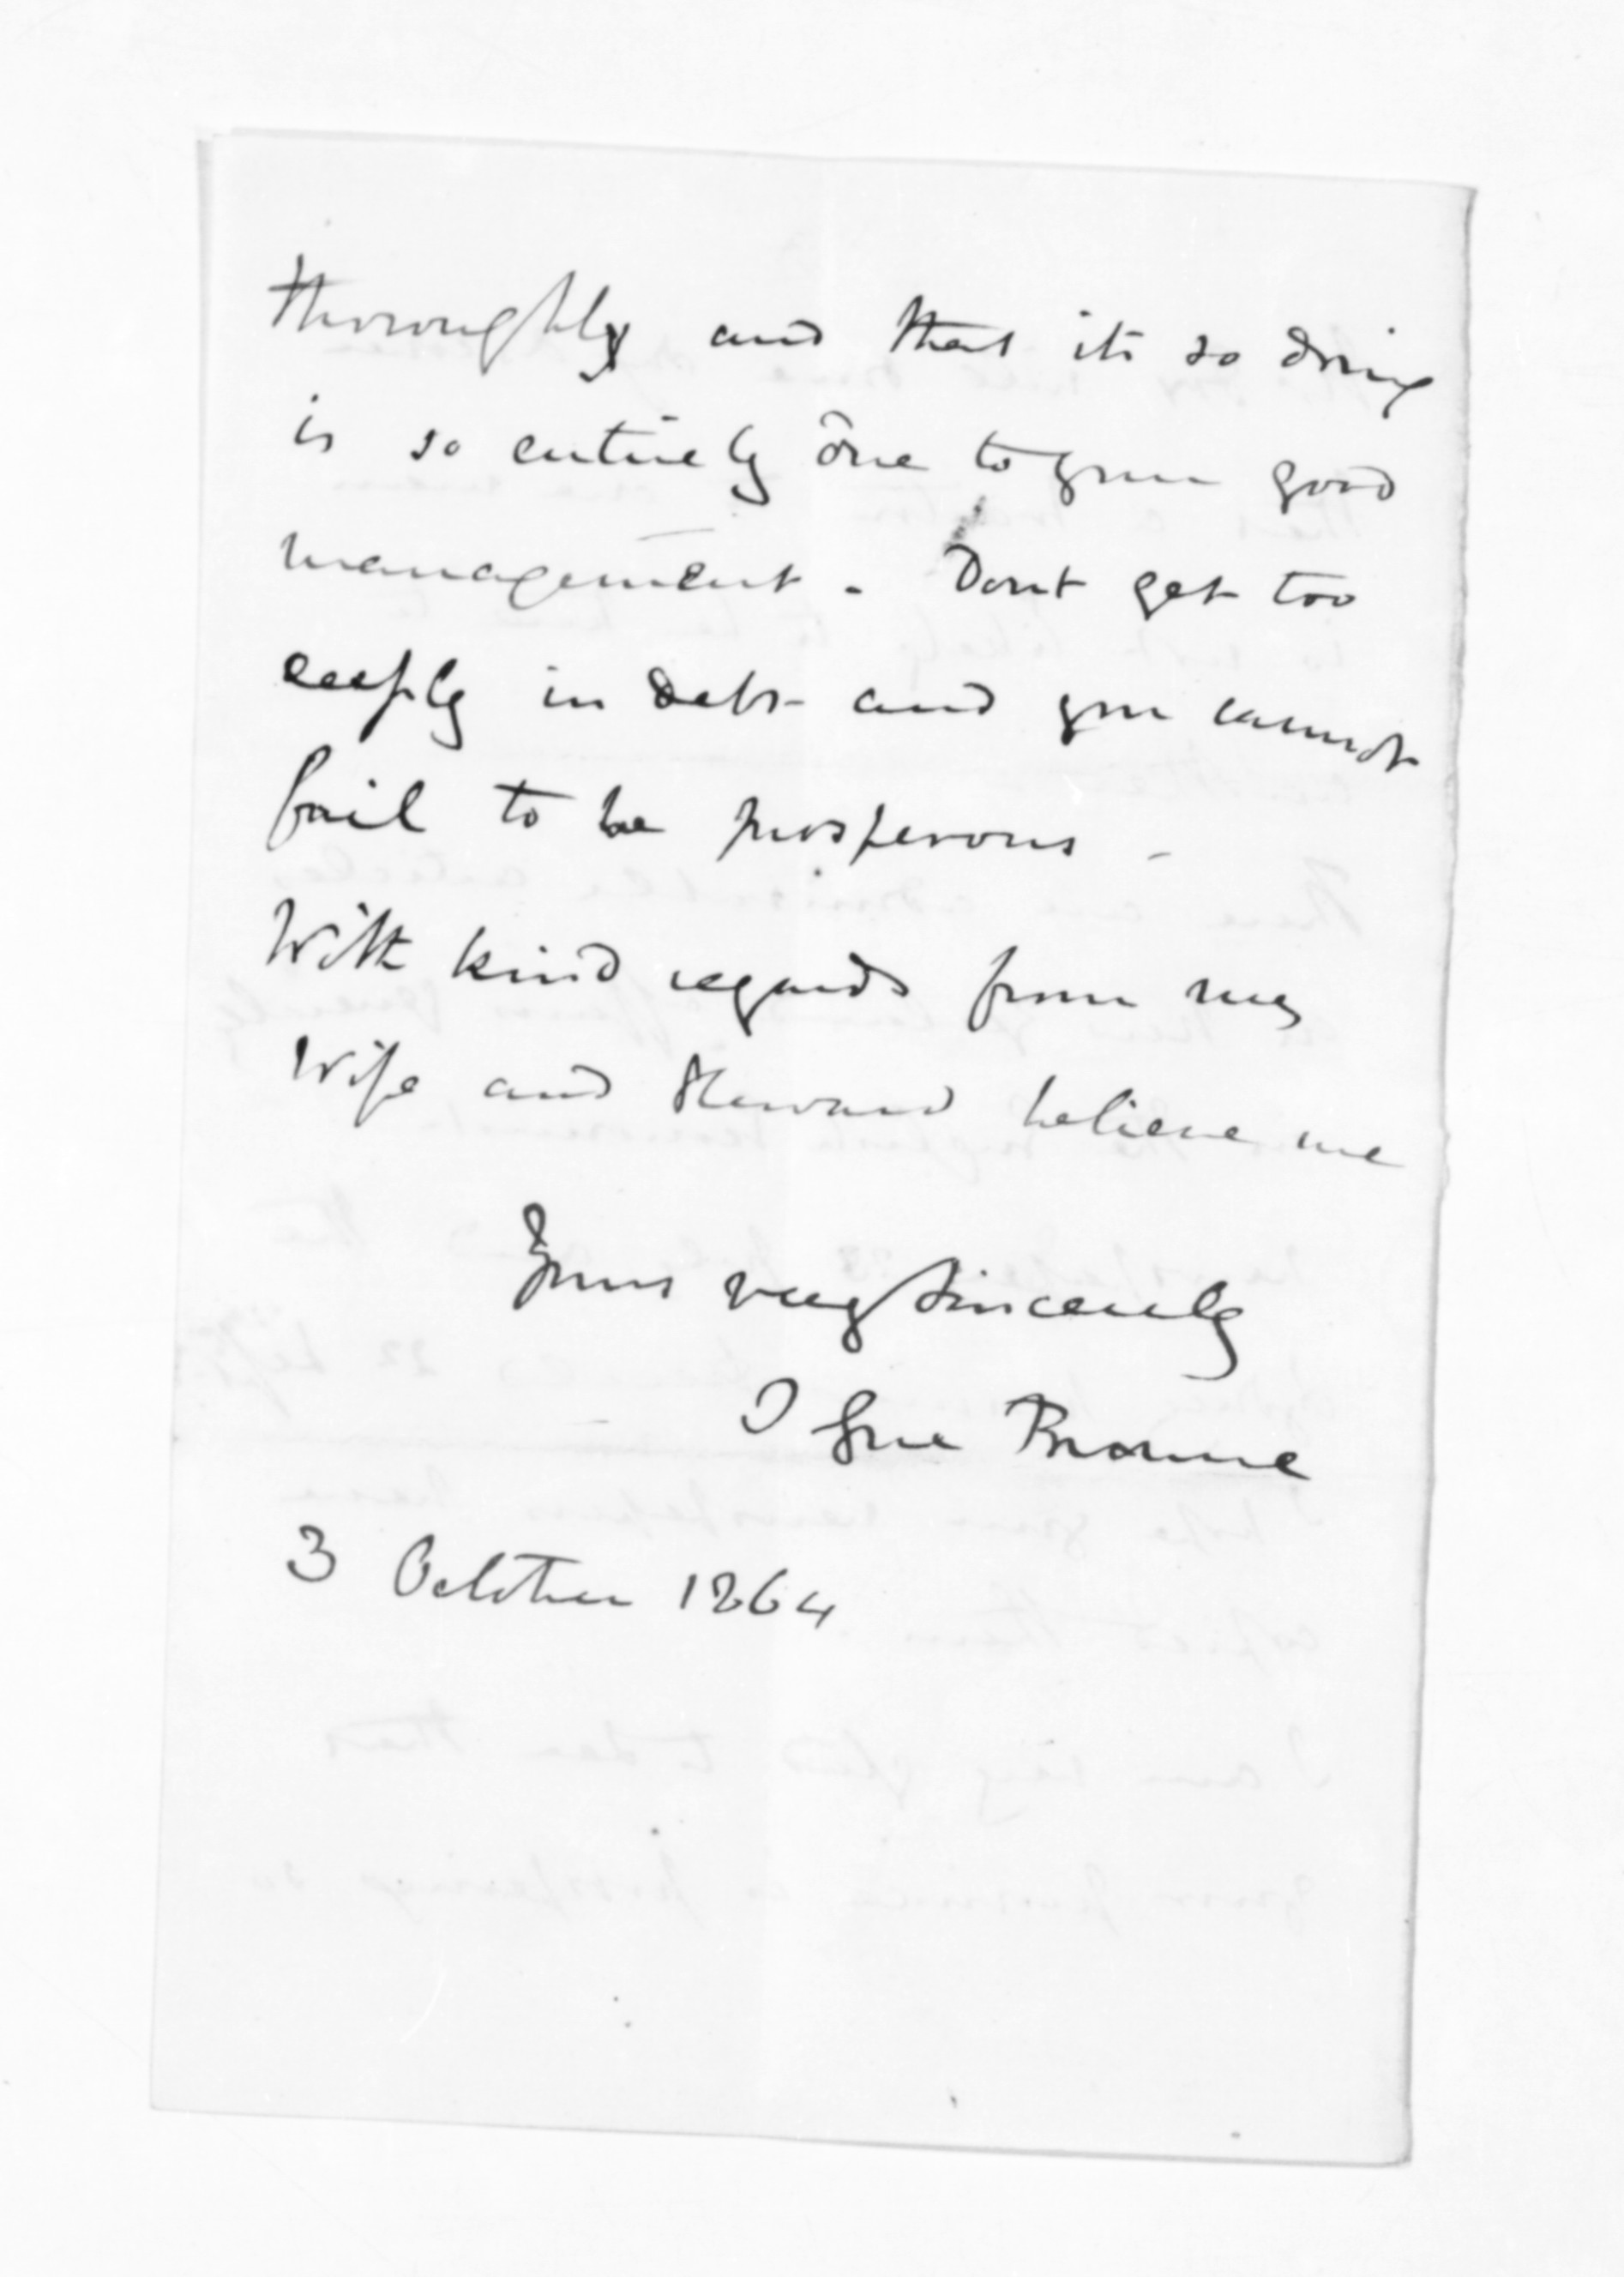 thoroughly and that its so doing
is so entirely due to your good
management. Dont get too
deeply in debt and you cannot
fail to be prosperous -
With kind regards from my
Wife and Steward believe me
Yours very Sincerely
T Gore Browne
3 October 1864